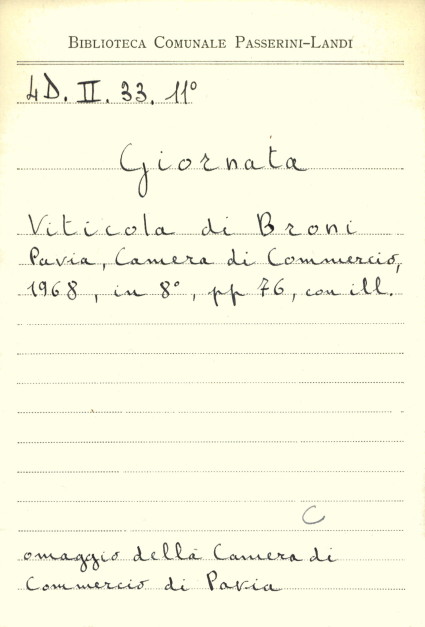 BIBLIOTECA COMUNALE PASSERINI-LANDI
4D. II. 33. 11°
Giornata
Viticola di Broni
Pavia, Camera di Commercio,
1968, in 8°, pp 76, con ill.
C
omaggio della Camera di
Commercio di Pavia